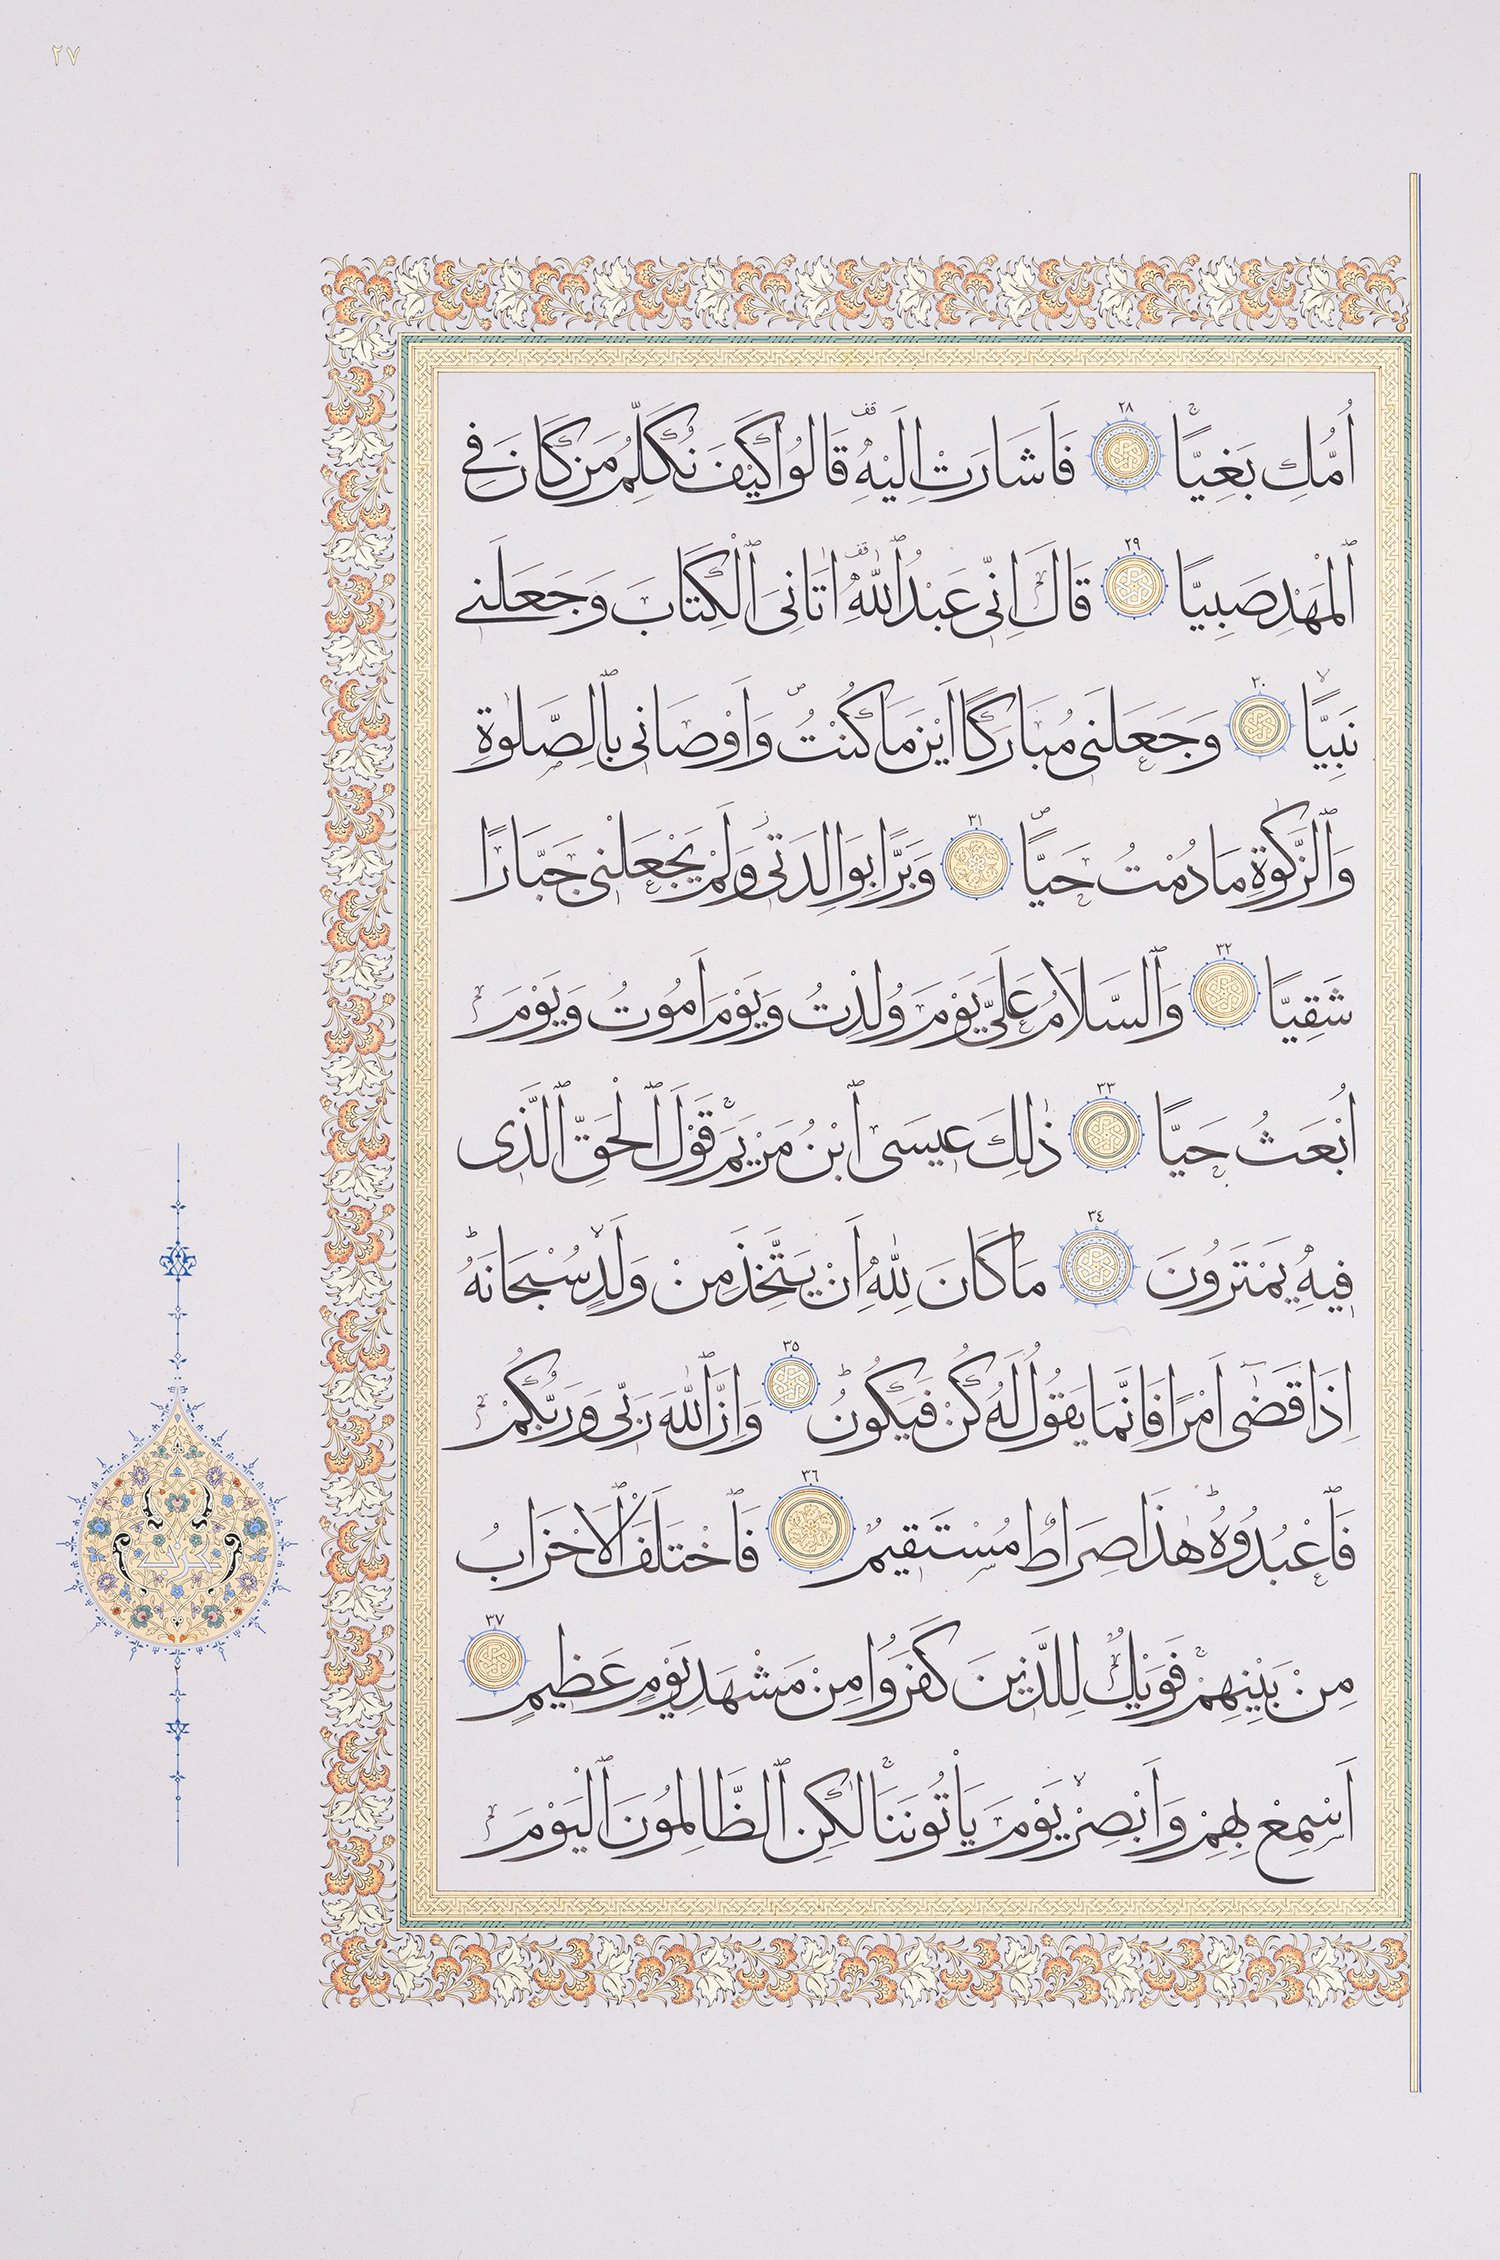 ٢٧
اُمُّكِ بَغِيًّاۚ ٢٨ فَاَشَارَتْ اِلَيْهِ قفۜ قَالُوا كَيْفَ نُكَلِّمُ مَنْ كَانَ فِي
ٱلْمَهْدِ صَبِيًّا ٢٩ قَالَ اِنّ۪ي عَبْدُ ٱللّٰهِ قف اٰتَانِيَ ٱلْكِتَابَ وَجَعَلَن۪ي
نَبِيًّاۙ ٣٠ وَجَعَلَن۪ي مُبَارَكًا اَيْنَ مَا كُنْتُۖ وَاَوْصَان۪ي بِٱلصَّلٰوةِ
وَٱلزَّكٰوةِ مَا دُمْتُ حَيًّاۖ ٣١ وَبَرًّا بِوَالِدَت۪يۘ وَلَمْ يَجْعَلْن۪ي جَبَّارًا
شَقِيًّا ٣٢ وَٱلسَّلَامُ عَلَيَّ يَوْمَ وُلِدْتُ وَيَوْمَ اَمُوتُ وَيَوْمَ
اُبْعَثُ حَيًّا ٣٣ ذٰلِكَ ع۪يسَى ٱبْنُ مَرْيَمَۚ قَوْلَ ٱلْحَقِّ ٱلَّذ۪ي
ف۪يهِ يَمْتَرُونَ ٣٤ مَا كَانَ لِلّٰهِ اَنْ يَتَّخِذَ مِنْ وَلَدٍۙ سُبْحَانَهُۜ
اِذَا قَضٰٓى اَمْرًا فَاِنَّمَا يَقُولُ لَهُ كُنْ فَيَكُونُۜ ٣٥ وَاِنَّ ٱللّٰهَ رَبّ۪ي وَرَبُّكُمْ
فَٱعْبُدُوهُۜ هٰذَا صِرَاطٌ مُسْتَق۪يمٌ ٣٦ فَٱخْتَلَفَ ٱلْاَحْزَابُ
مِنْ بَيْنِهِمْۚ فَوَيْلٌ لِلَّذ۪ينَ كَفَرُوا مِنْ مَشْهَدِ يَوْمٍ عَظ۪يمٍ ٣٧
اَسْمِعْ بِهِمْ وَاَبْصِرْۙ يَوْمَ يَأْتُونَنَاۚ لٰكِنِ ٱلظَّالِمُونَ ٱلْيَوْمَ